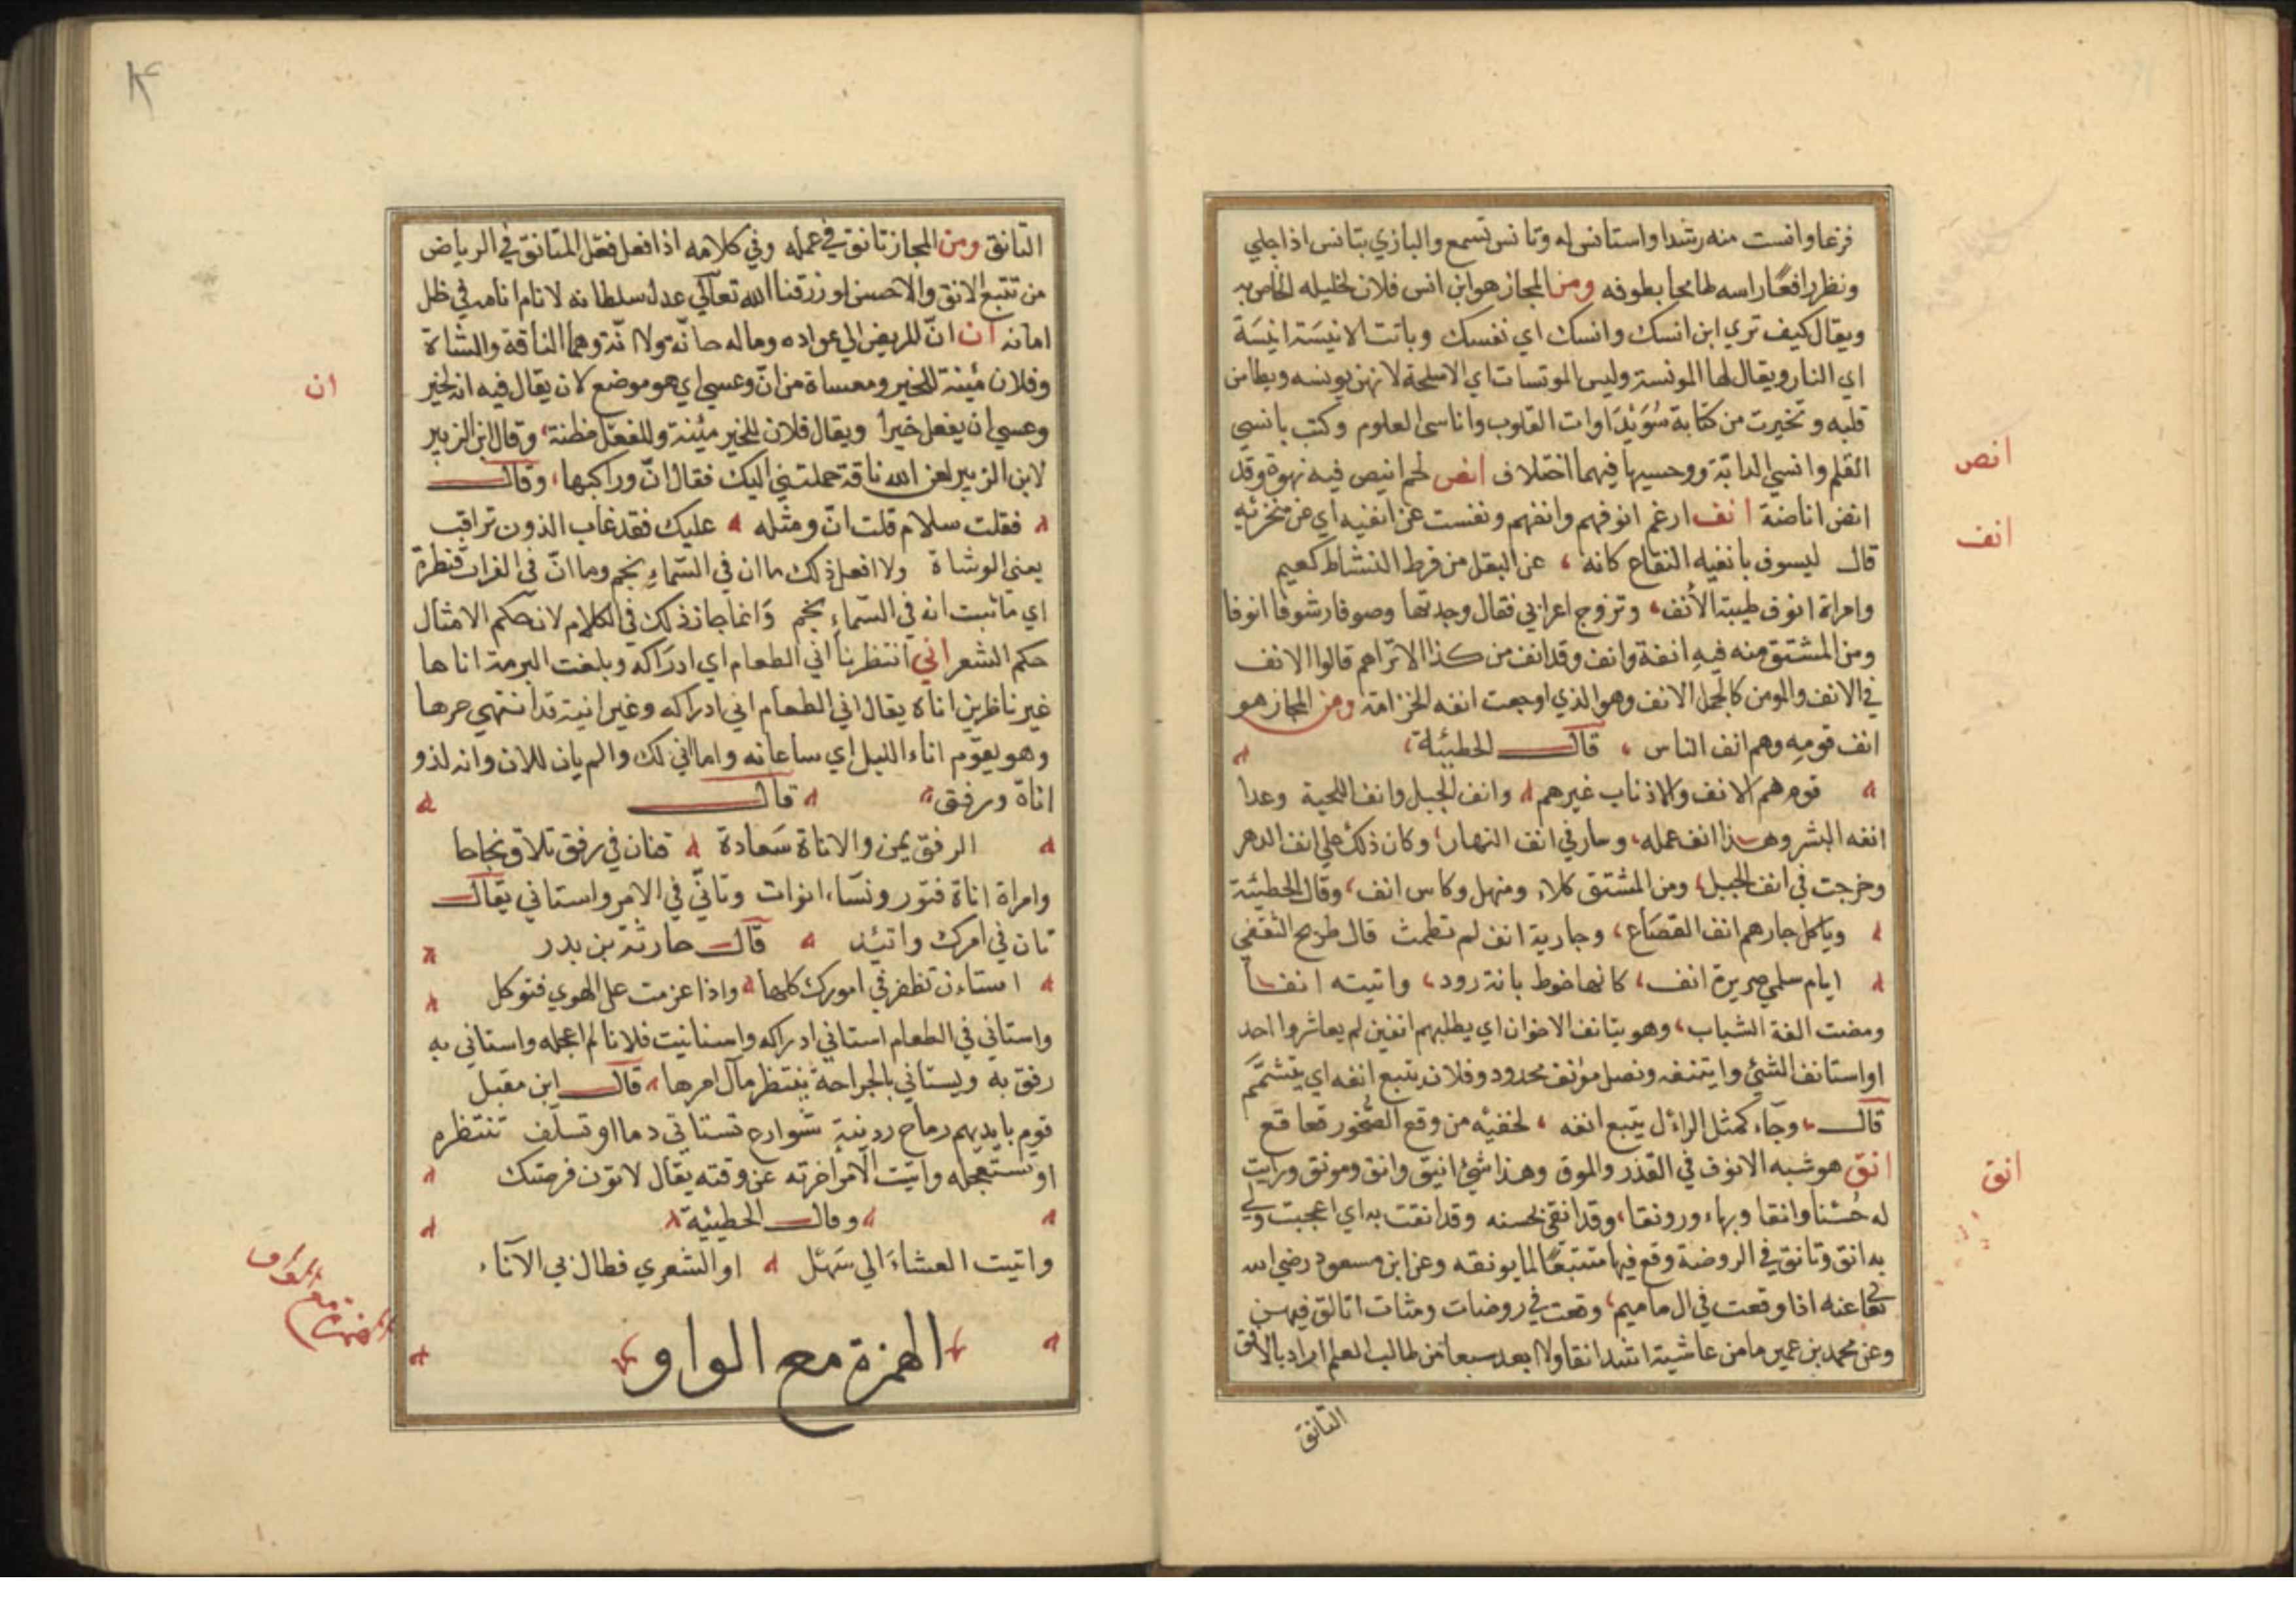 فزعا وانست منه رشدا واستانس له وتانس تسمع والبازي يتانس اذا جلي
ونظر رافعًا راسه طامحا بطوفه ومن المجاز هو ابن انس فلان لخليله الخاص به
ويقال كيف تري ابن انسك وانسك اي نفسك وباتت الانيسَة انيسَة
اي النار ويقال لها المونسة ولبس الموتسات اي الاسلحة لانهن يونسه ويطامن
قلبه وتخيرت من كتابة سُوَيْدَاوات القلوب واناسى العلوم وكتب بانسي
القلم وانسي الدابة ووحسيها فيهما اختلاف انض لحم انيض فيه نهوة وقد
انض اناضة انف ارغم انوفهم وانفهم ونفست عن انفيه اي عن منخريه
قال ليسوف بانفيه النقاع كانه ، عن البقل من فرط النشاط كعيم
وامراة انوف طيبة الأنف ، وتزوج اعرابي فقال وجدتها وصوفا رشوفا انوفا
ومن المشتق منه فيه انفة وانف وقد انف من كذا الا تراهم قالوا الانف
في الانف والمومن كالجمل الانف وهو الذي اوجعت انفه الخزامة ومن المجاز هو
انف قومِه وهم انف الناس ، قال الحطيئة ،
قوم هم الانف والاذناب غيرهم وانف الجبل وانف اللحية وعدا
انفه البشر وهذا انف عمله ، وسار في انف النهار ، وكان ذلك على انف الدهر
وخرجت في انف الجبل ، ومن المشتق كلاء ومنهل وكاس انف ، وقال الحطيئة
وياكل جارهم انف القصَاع ، وجارية انف لم تطمث قال طريح الثقفي
ايام سلمي صريرة انف ، كانها خوط بانة رود ، واتيته انفا
ومضت الفة الشباب ، وهو يتانف الاخوان اي يطلبهم انفين لم يعاشروا احد
او استانف الشئ وايتنفه ونصل مؤنف محدود وفلان يتبع انفه اي يتشمَّم
قال ، وجاء كمثل الرأل يتبع انفه ، لخفيه من وقع الصخور قعاقع
انق هو شبه الانوف في القذر والموق وهذا شئ انيق وانق ومونق ورايت
له حُسْنا وانقا وبهاء ورونقا ، وقد انقني بحسنه وقد انقت به اي اعجبت ولي
به انق وتانق في الروضة وقع فيها متتبعًا لما يونقه وعن ابن مسعود رضي الله
تعالى عنه اذا وقعت في ال حاميم ، وقعت في روضات ومثات اتالق فيهن
وعن محمد بن عمير ما من عاشية اشد انقا ولا ابعد سبعا من طالب العلم اراد بالانق
التانق
انض
انف
انق
التانق ومن المجاز تانق في عمله وفي كلامه اذا فعل فعل المتانق في الرياض
من تتبع الانق والاحسن او زرقنا الله تعالي عدل سلطانه لانام انامه في ظل
امانه ان انّ للمريض الي عواده وما له حانّة ولا انّة وهما الناقة والشاة
وفلان مئينة للخير ومعساة من انّ وعسي اي هو موضع لان يقال فيه انه لخير
وعسي ان يفعل خيرا ويقال فلان للخير مئينة وللفعل مظنة ، وقال ابن الزبير
لابن الزبير لعن الله ناقة حملتني اليك فقال انّ وراكبها ، وقال
فقلت سلام قلت انّ ومثله عليك فقد غاب الذون تراقب
يعنى الوشاة ولا افعل ذلك ما ان في السّماءِ نجم وما انّ فى الفرات قطرة
اي ما ثبت انه في السّماءِ نجم وَانما جاز ذلك في الكلام لان حكم الامثال
حكم الشعر اني انتظرنا اني الطعام اي ادرَاكه وبلغت البرمة اناها
غير ناظرين اناه يقال اني الطعام اني ادراكه وغير انية قد انتهي حرها
وهو يقوم اناء الليل اي ساعاته واما اني لك والم يان للان وانه لذو
اناة ورفق قال
الرفق يمن والاناة سَعادة فتان في رفق تلاق نجاحا
وامراة اناة فتور ونسَاء انوات وتانّي في الامر واستاني يقال
تان في امرك واتيئد قال حارثة بن بدر
استاءن تظفر في امورك كلها واذا عزمت على الهوي فتوكل
واستاني في الطعام استاني ادراكه واستانيت فلانا لم اعجله واستاني به
رفق به ويستاني بالجراحة ينتظر مآل امرها قال ابن مقبل
قوم بايديهم رماح ردينة شوارع تستاتى دما او تسلف تنتظره
او تستعجله وانيت الامر اخرته عن وقته يقال لا تون فرصتك
وقال الحطيئة
وانيت العشاءَ الي سَهئل او الشعري فطال بي الآناء
الهمزة مع الواو
ان
الهمزة مع الواو